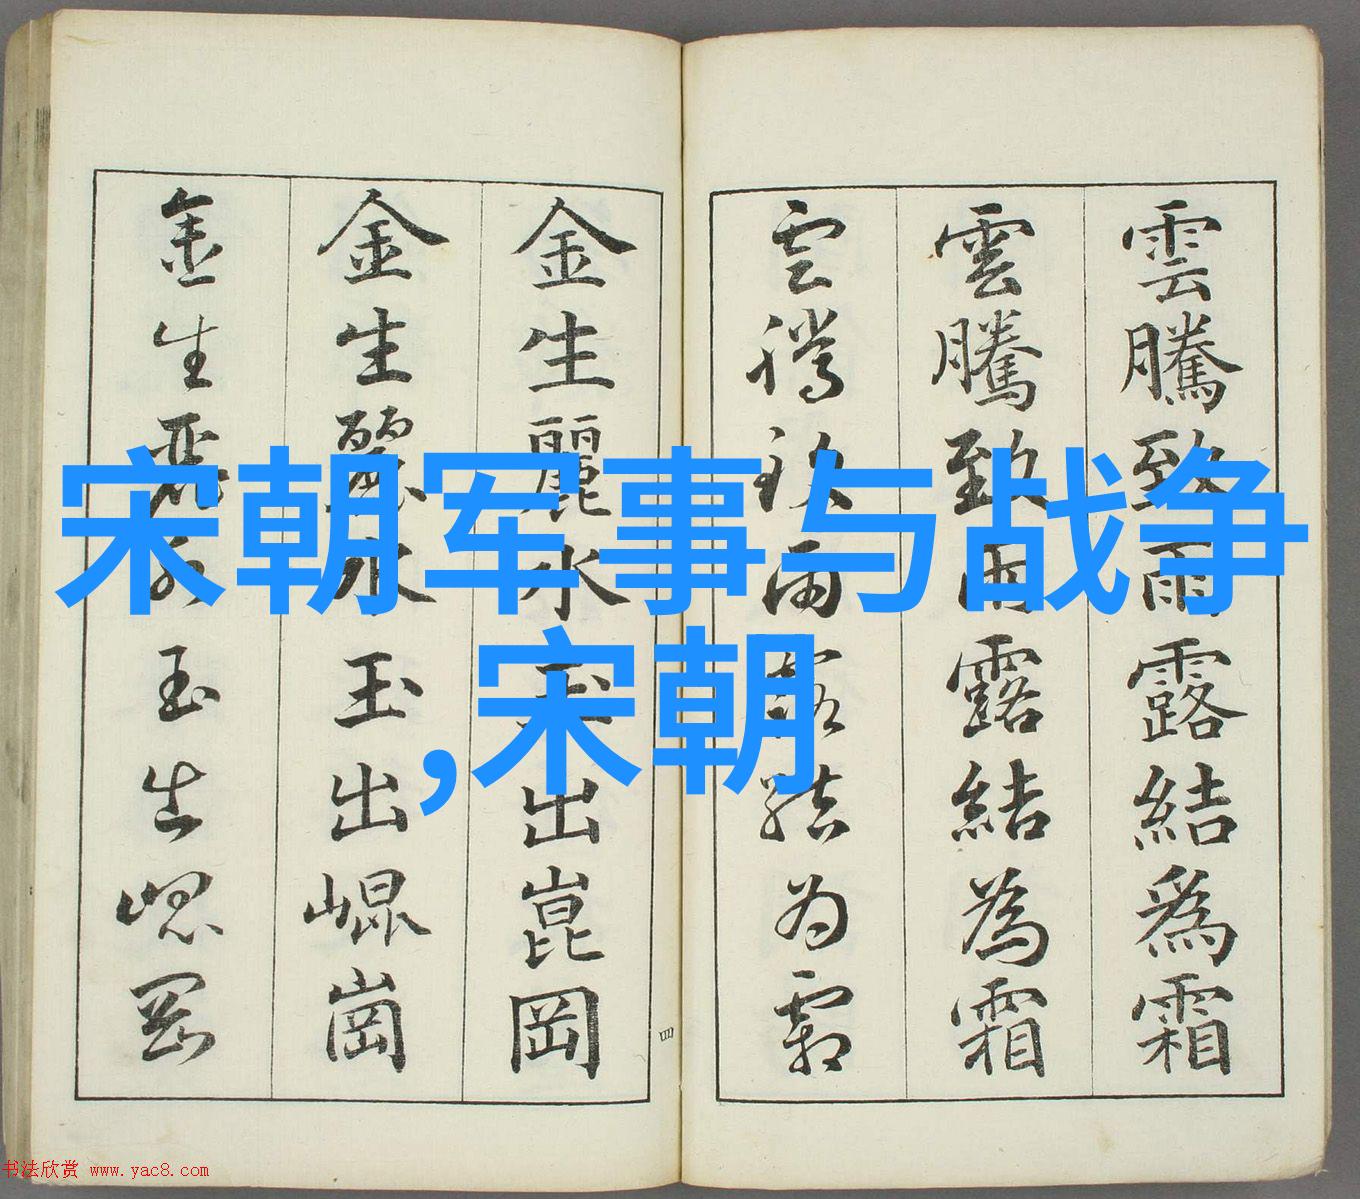 雲騰致雨露結爲霜
雲騰致雨露結為霜
雲騰致雨露結为霜
四
金生麗水玉出崑岡
金生麗水玉出崐崗
金生麗水玉出崐岡
宋朝军事与战争
,宋朝
书法欣赏 www.yac8.com